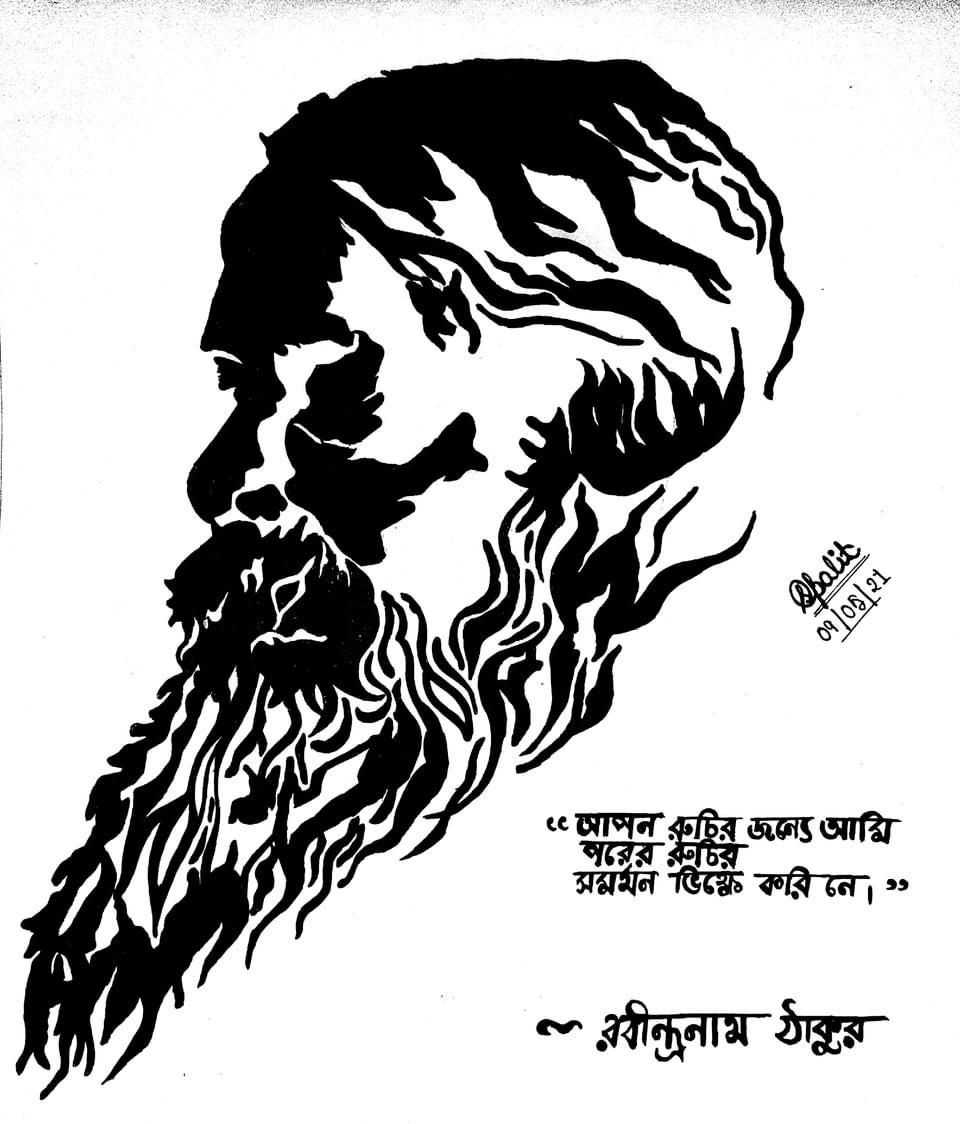 Spalit
09/05/21
“আপন রুচির জন্যে আমি
পরের রুচির
সমর্মন ভিক্ষে করি নে।”
~ রবীন্দ্রনাথ ঠাকুর